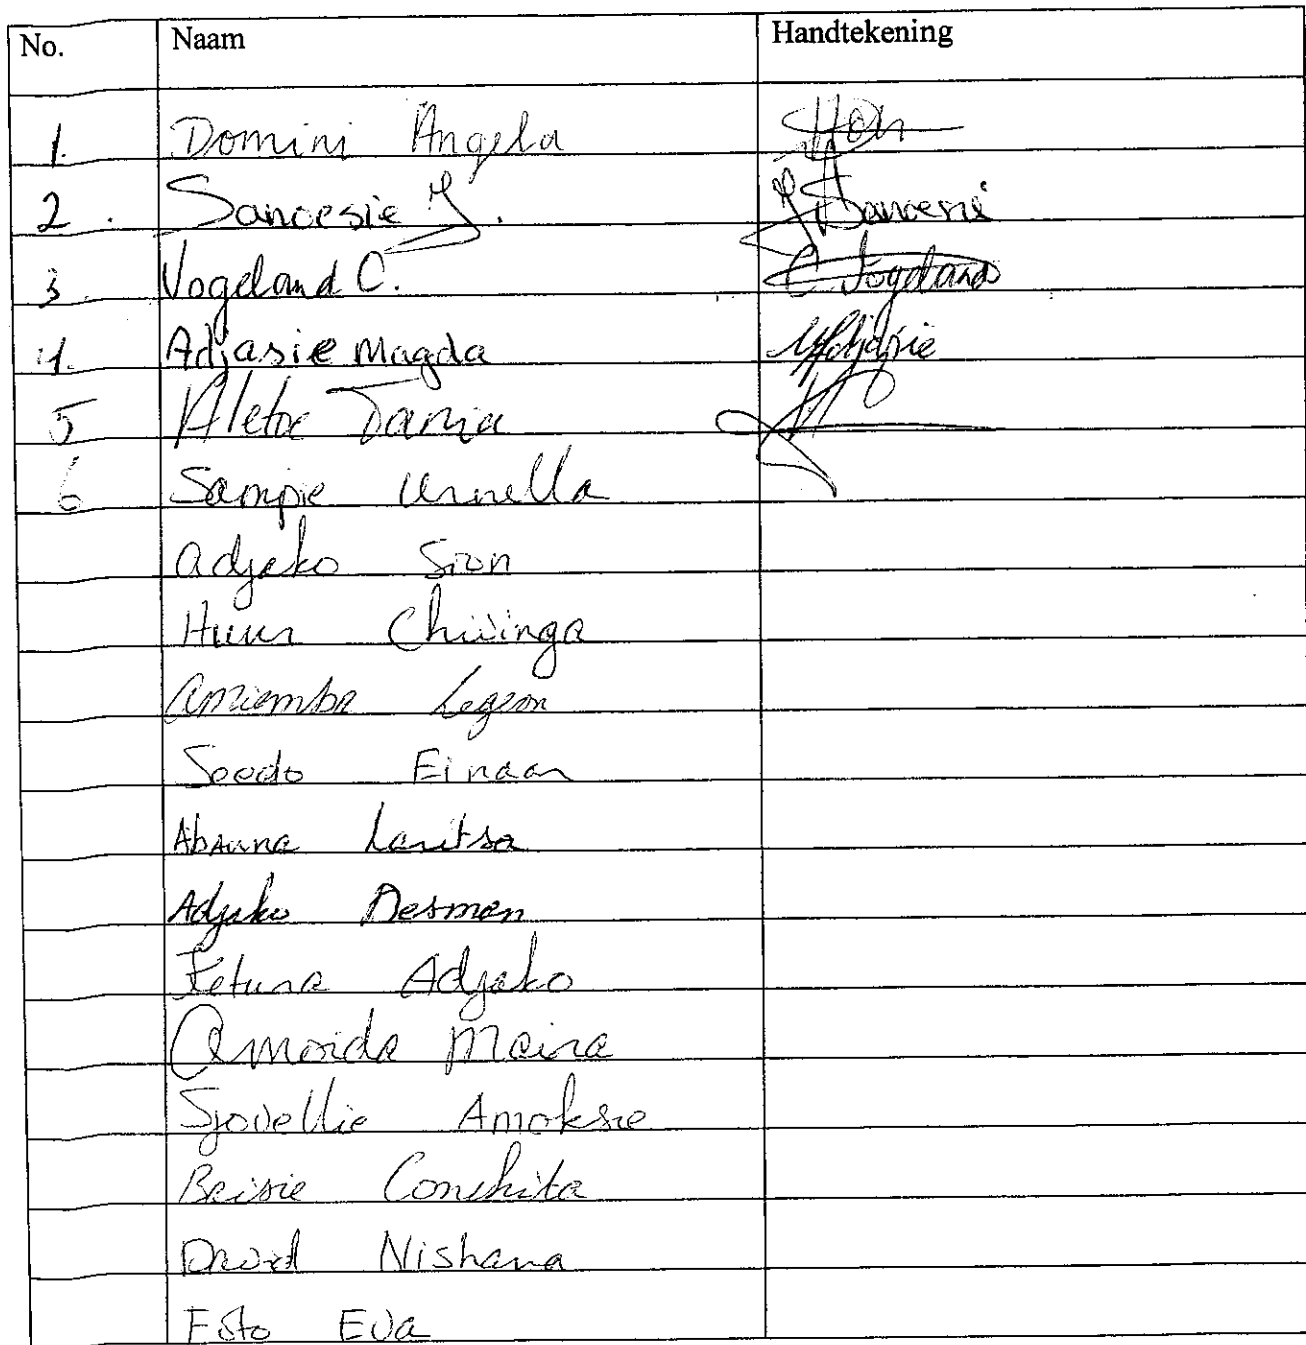 No. Naam Handtekening
1. Domini Angela
2. Sanoesie J. J Sanoesie
3 Vogeland C. C Vogeland
4. Adjasie Magda MAdjasie
5 Aletoe Tania
6 Sampie Urnella
Adjako Sion
Huur
Amiemba
Seedo Einaar
Abauna Laritsa
Adjako Desmon
Fetuna Adjako
Amoida Maira
Sjovellie Amoksie
Brisie Conchita
David Nishana
Esto Eva